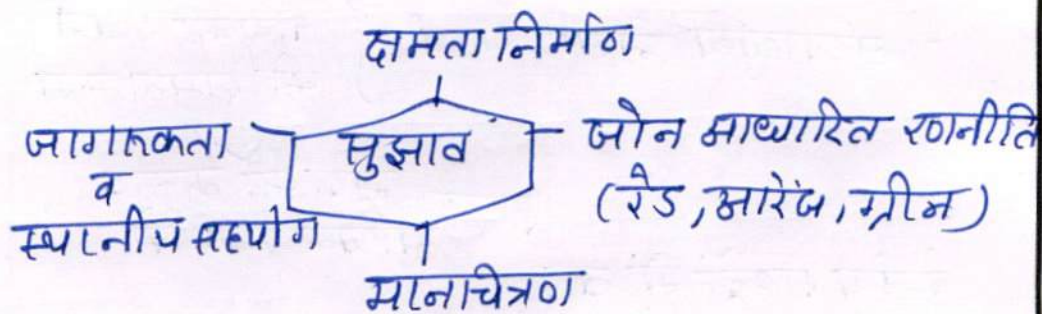 क्षमता निर्माण
जागरूकता
व
स्थानीय सहयोग
सुझाव
जोन आधारित रणनीति
(रेड, आरेंज, ग्रीन)
मानचित्रण